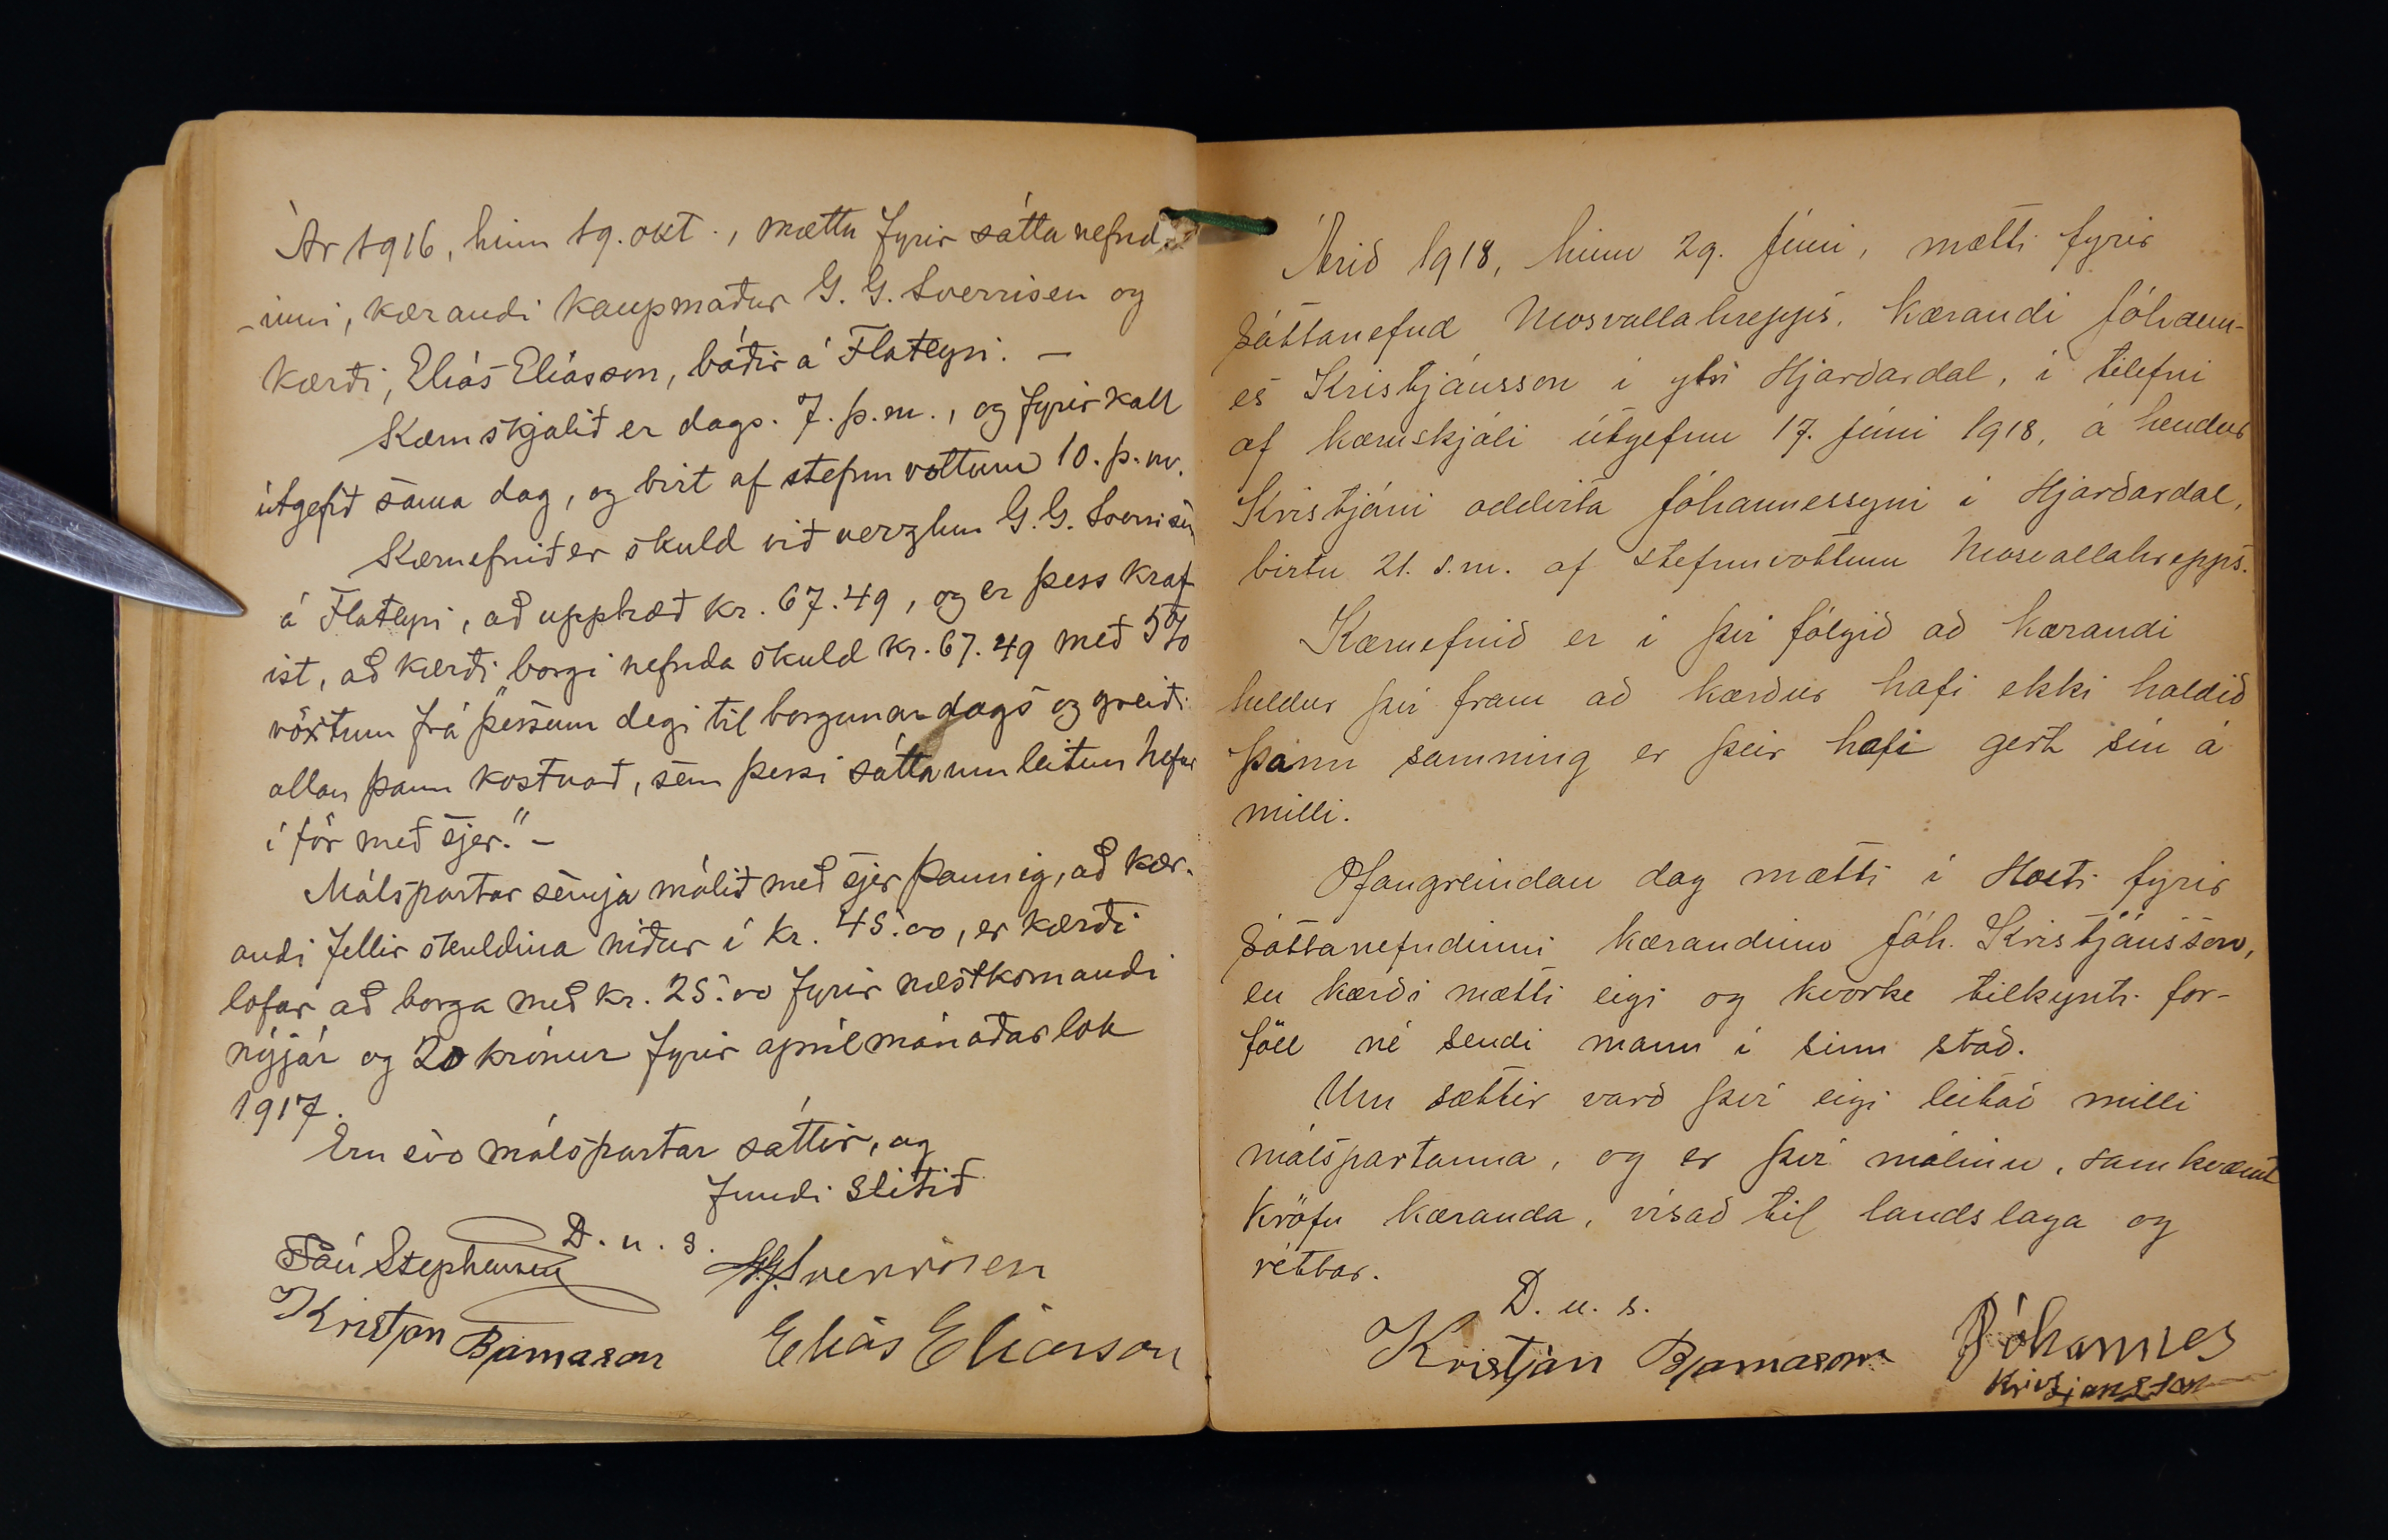 Ár 1916, hinn 19. okt., mættu fyrir sáttanefnd-
-inni, kærandi kaupmaður G. G. Sverrisen og
kærði, Elías Elíasson, báðir á Flateyri. —
Kæruskjalið er dags. 7. þ.m., og fyrirkall
útgefið sama dag, og birt af stefnuvottum 10. þ.m.
Kæruefnið er skuld við verzlun G. G. Sverrisen
á Flateyri, að upphæð kr. 67.49, og er þess kraf
ist, að kærði „borgi nefnda skuld kr. 67.49 með 5%
vöxtum frá þessum degi til borgunardags og greiði
allan þann kostnað, sem þessi sáttaumleitun hefur
í för með sjer.“ —
Málspartar semja málið með sjer þannig, að kær-
andi fellir skuldina niður í kr. 45.00, er kærði
lofar að borga með kr. 25.00 fyrir næstkomandi
nýjár og 20 krónur fyrir aprílmánaðarlok
1917.
Eru svo málspartar sáttir, og
fundi slitið
D. u. s.
Páll Stephensen G.G. Sverrisen
Kristján Bjarnason Elías Elíasson
Árið 1918, hinn 29. júní, mætti fyrir
sáttanefnd Mosvallahrepps, kærandi Jóhann-
es Kristjánsson í ytri Hjarðardal, í tilefni
af kæruskjali útgefnu 17. júní 1918, á hendur
Kristjáni oddvita Jóhannessyni í Hjarðardal,
birtu 21. s.m. af stefnuvottum Mosvallahrepps.
Kæruefnið er í því fólgið að kærandi
heldur því fram að kærður hafi ekki haldið
þann samning er þeir hafi gert sín á
milli.
Ofangreindan dag mætti í Holti fyrir
sáttanefndinni kærandinn Jóh. Kristjánsson,
en kærði mætti eigi og hvorke tilkynti for-
föll né sendi mann í sinn stað.
Um sættir varð því eigi leitað milli
málspartanna, og er því málinu, samkvæmt
kröfu kæranda, vísað til landslaga og
réttar.
D. u. s.
Kristján Bjarnason Jóhannes
Kristjansson